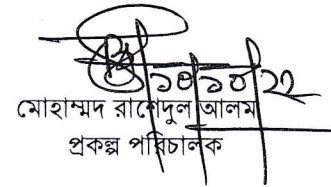 ১০/১০/২২
মোহাম্মদ রাশেদুল আলম
প্রকল্প পরিচালক